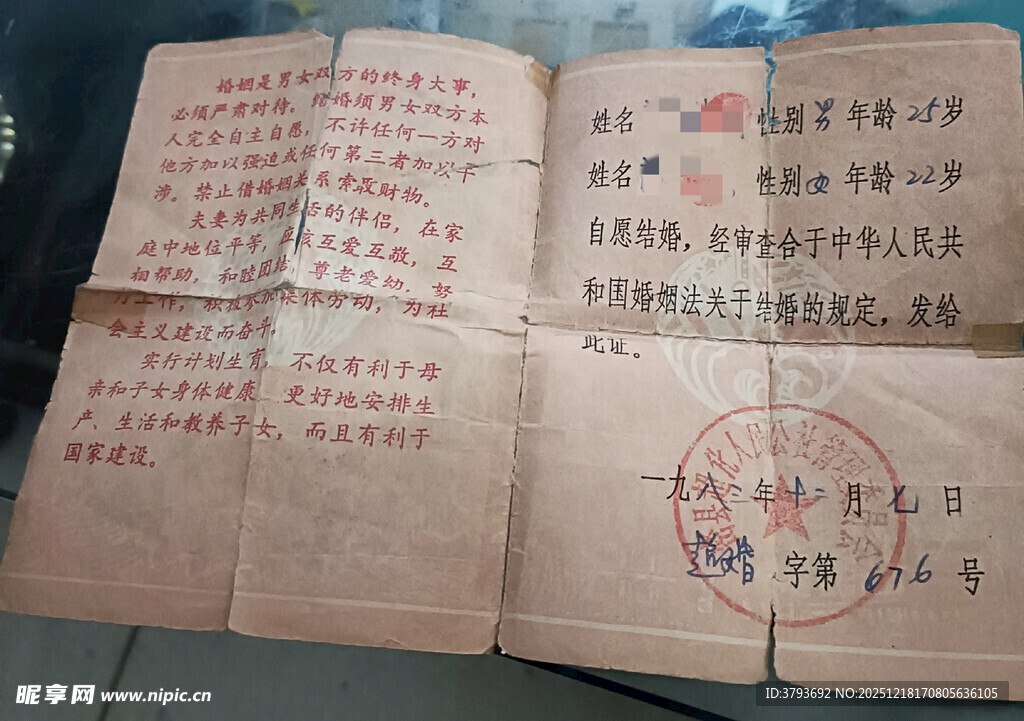 婚姻是男女双方的终身大事，
必须严肃对待。结婚须男女双方本
人完全自主自愿，不许任何一方对
他方加以强迫或任何第三者加以干
涉。禁止借婚姻关系索取财物。
夫妻为共同生活的伴侣，在家
庭中地位平等，应该互爱互敬，互
相帮助，和睦团结，尊老爱幼，努
力工作，积极参加集体劳动，为社
会主义建设而奋斗。
实行计划生育，不仅有利于母
亲和子女身体健康，更好地安排生
产、生活和教养子女，而且有利于
国家建设。
姓名 性别男年龄25岁
姓名 性别女年龄22岁
自愿结婚，经审查合于中华人民共
和国婚姻法关于结婚的规定，发给
此证。
一九八三年十二月七日
婚字第676号
化人民公社管理委员会
昵享网 www.nipic.cn
ID:3793692 NO:20251218170805636105